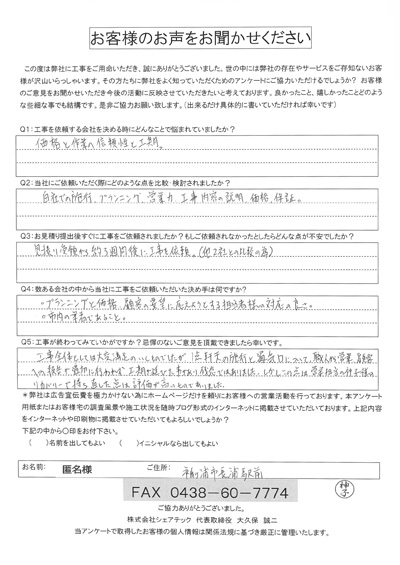 お客様のお声をお聞かせください
この度は弊社に工事をご用命いただき、誠にありがとうございました。世の中には弊社の存在やサービスをご存知ないお客
様が沢山いらっしゃいます。その方たちに弊社をよく知っていただくためのアンケートにご協力いただけるでしょうか？ お客様
のご意見をお聞かせいただき今後の活動に反映させていただきたいと考えております。良かったこと、嬉しかったことどのよう
な些細な事でも結構です。是非ご協力お願い致します。（出来るだけ具体的に書いていただければ幸いです）
Q1：工事を依頼する会社を決める時にどんなことで悩まれていましたか？
価格と作業の信頼性と工期。
Q2：当社にご依頼いただく際にどのような点を比較・検討されましたか？
自社での施行、プランニング、営業力、工事内容の説明、価格、保証。
Q3：お見積り提出後すぐに工事をご依頼されましたか？もしご依頼されなかったとしたらどんな点が不安でしたか？
見積り受領から約3週間後に工事を依頼。（他2社との比較の為）
Q4：数ある会社の中から当社に工事をご依頼いただいた決め手は何ですか？
○プランニングと価格、顧客の要望に応えようとする担当者様の対応の良さ。
○市内の業者であること。
Q5：工事が終わってみていかがですか？忌憚のないご意見を頂戴できましたら幸いです。
工事全体としては大変満足のいくものでしたが、
への
リカバリーで持ち直した点は評価が高いとこでありました。
＊弊社は広告宣伝費を極力かけない為にホームページだけを頼りにお客様への営業活動を行っております。本アンケート
用紙またはお客様宅の調査風景や施工状況を随時ブログ形式のインターネットに掲載させていただいております。上記内容
をインターネットや印刷物に掲載させていただいてもよろしいでしょうか？
下記の中から○印をお付下さい。
（　　）名前を出してもよい　（　　）イニシャルなら出してもよい
お名前： 匿名様 ご住所： 袖ケ浦市長浦駅前
FAX 0438-60-7774
ご協力ありがとうございました。
株式会社シェアテック 代表取締役 大久保 誠二
当アンケートで取得したお客様の個人情報は関係法規に基づき厳正に管理いたします。